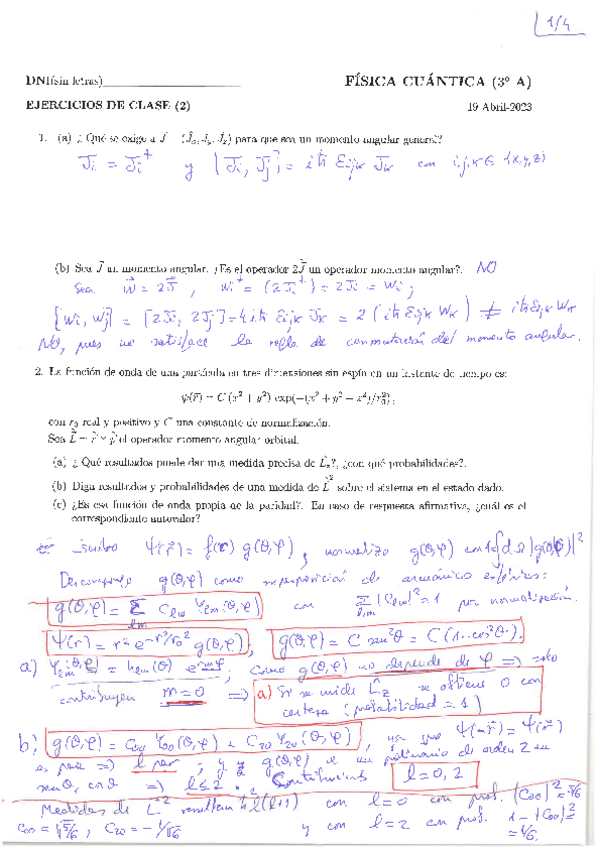 1/4
DNI(sin letras)
FÍSICA CUÁNTICA (3º A)
EJERCICIOS DE CLASE (2)
19 Abril-2023
1. (a) ¿Qué se exige a J⃗ = (Ĵx, Ĵy, Ĵz) para que sea un momento angular general?
Ji = Ji⁺ y [Ji, Jj] = iħ εijk Jk con i,j,k ∈ {x,y,z}
(b) Sea J⃗ un momento angular. ¿Es el operador 2J⃗ un operador momento angular?. NO
Sea w⃗ = 2J⃗, wi⁺ = (2Ji⁺) = 2Ji = wi;
[wi, wj] = [2Ji, 2Jj] = 4iħ εijk Jk = 2(iħ εijk wk) ≠ iħ εijk wk
NO, pues no satisface la regla de conmutación del momento angular.
2. La función de onda de una partícula en tres dimensiones sin espín en un instante de tiempo es:
φ(r⃗) = C (x² + y²) exp(−(x² + y² + z²)/r₀²),
con r₀ real y positivo y C una constante de normalización.
Sea L⃗ = r⃗ × p⃗ el operador momento angular orbital.
(a) ¿Qué resultados puede dar una medida precisa de L̂z?, ¿con qué probabilidades?.
(b) Diga resultados y probabilidades de una medida de L⃗² sobre el sistema en el estado dado.
(c) ¿Es esa función de onda propia de la paridad?. En caso de respuesta afirmativa, ¿cuál es el
correspondiente autovalor?
Escribo Ψ(r⃗) = f(r) g(θ,φ), normalizo g(θ,φ) ∫dΩ|g(θ,φ)|²
Descompongo g(θ,φ) como superposición de armónicos esféricos:
g(θ,φ) = Σlm Clm Ylm(θ,φ) con Σlm |Clm|² = 1 por normalización.
Ψ(r) = r² e^{-r²/r₀²} g(θ,φ), g(θ,φ) = C sen²θ = C(1-cos²θ).
a) Ylm(θ,φ) = hlm(θ) e^{imφ}, como g(θ,φ) no depende de φ ⟹ solo
contribuyen m=0 ⟹ a) Si se mide L̂z se obtiene 0 con
certeza (probabilidad = 1)
b) g(θ,φ) = C00 Y00(θ,φ) + C20 Y20(θ,φ), ya que Ψ(-r⃗) = Ψ(r⃗)
es par ⟹ l par; y g(θ,φ) es un polinomio de orden 2 en
senθ, cosθ ⟹ l ≤ 2. l = 0, 2
Medidas de L² resultan l(l+1) con l=0 con prob. |C00|² = 5/6
C00 = √5/√6, C20 = -1/√6 y con l=2 con prob. 1-|C00|²
= 1/6.